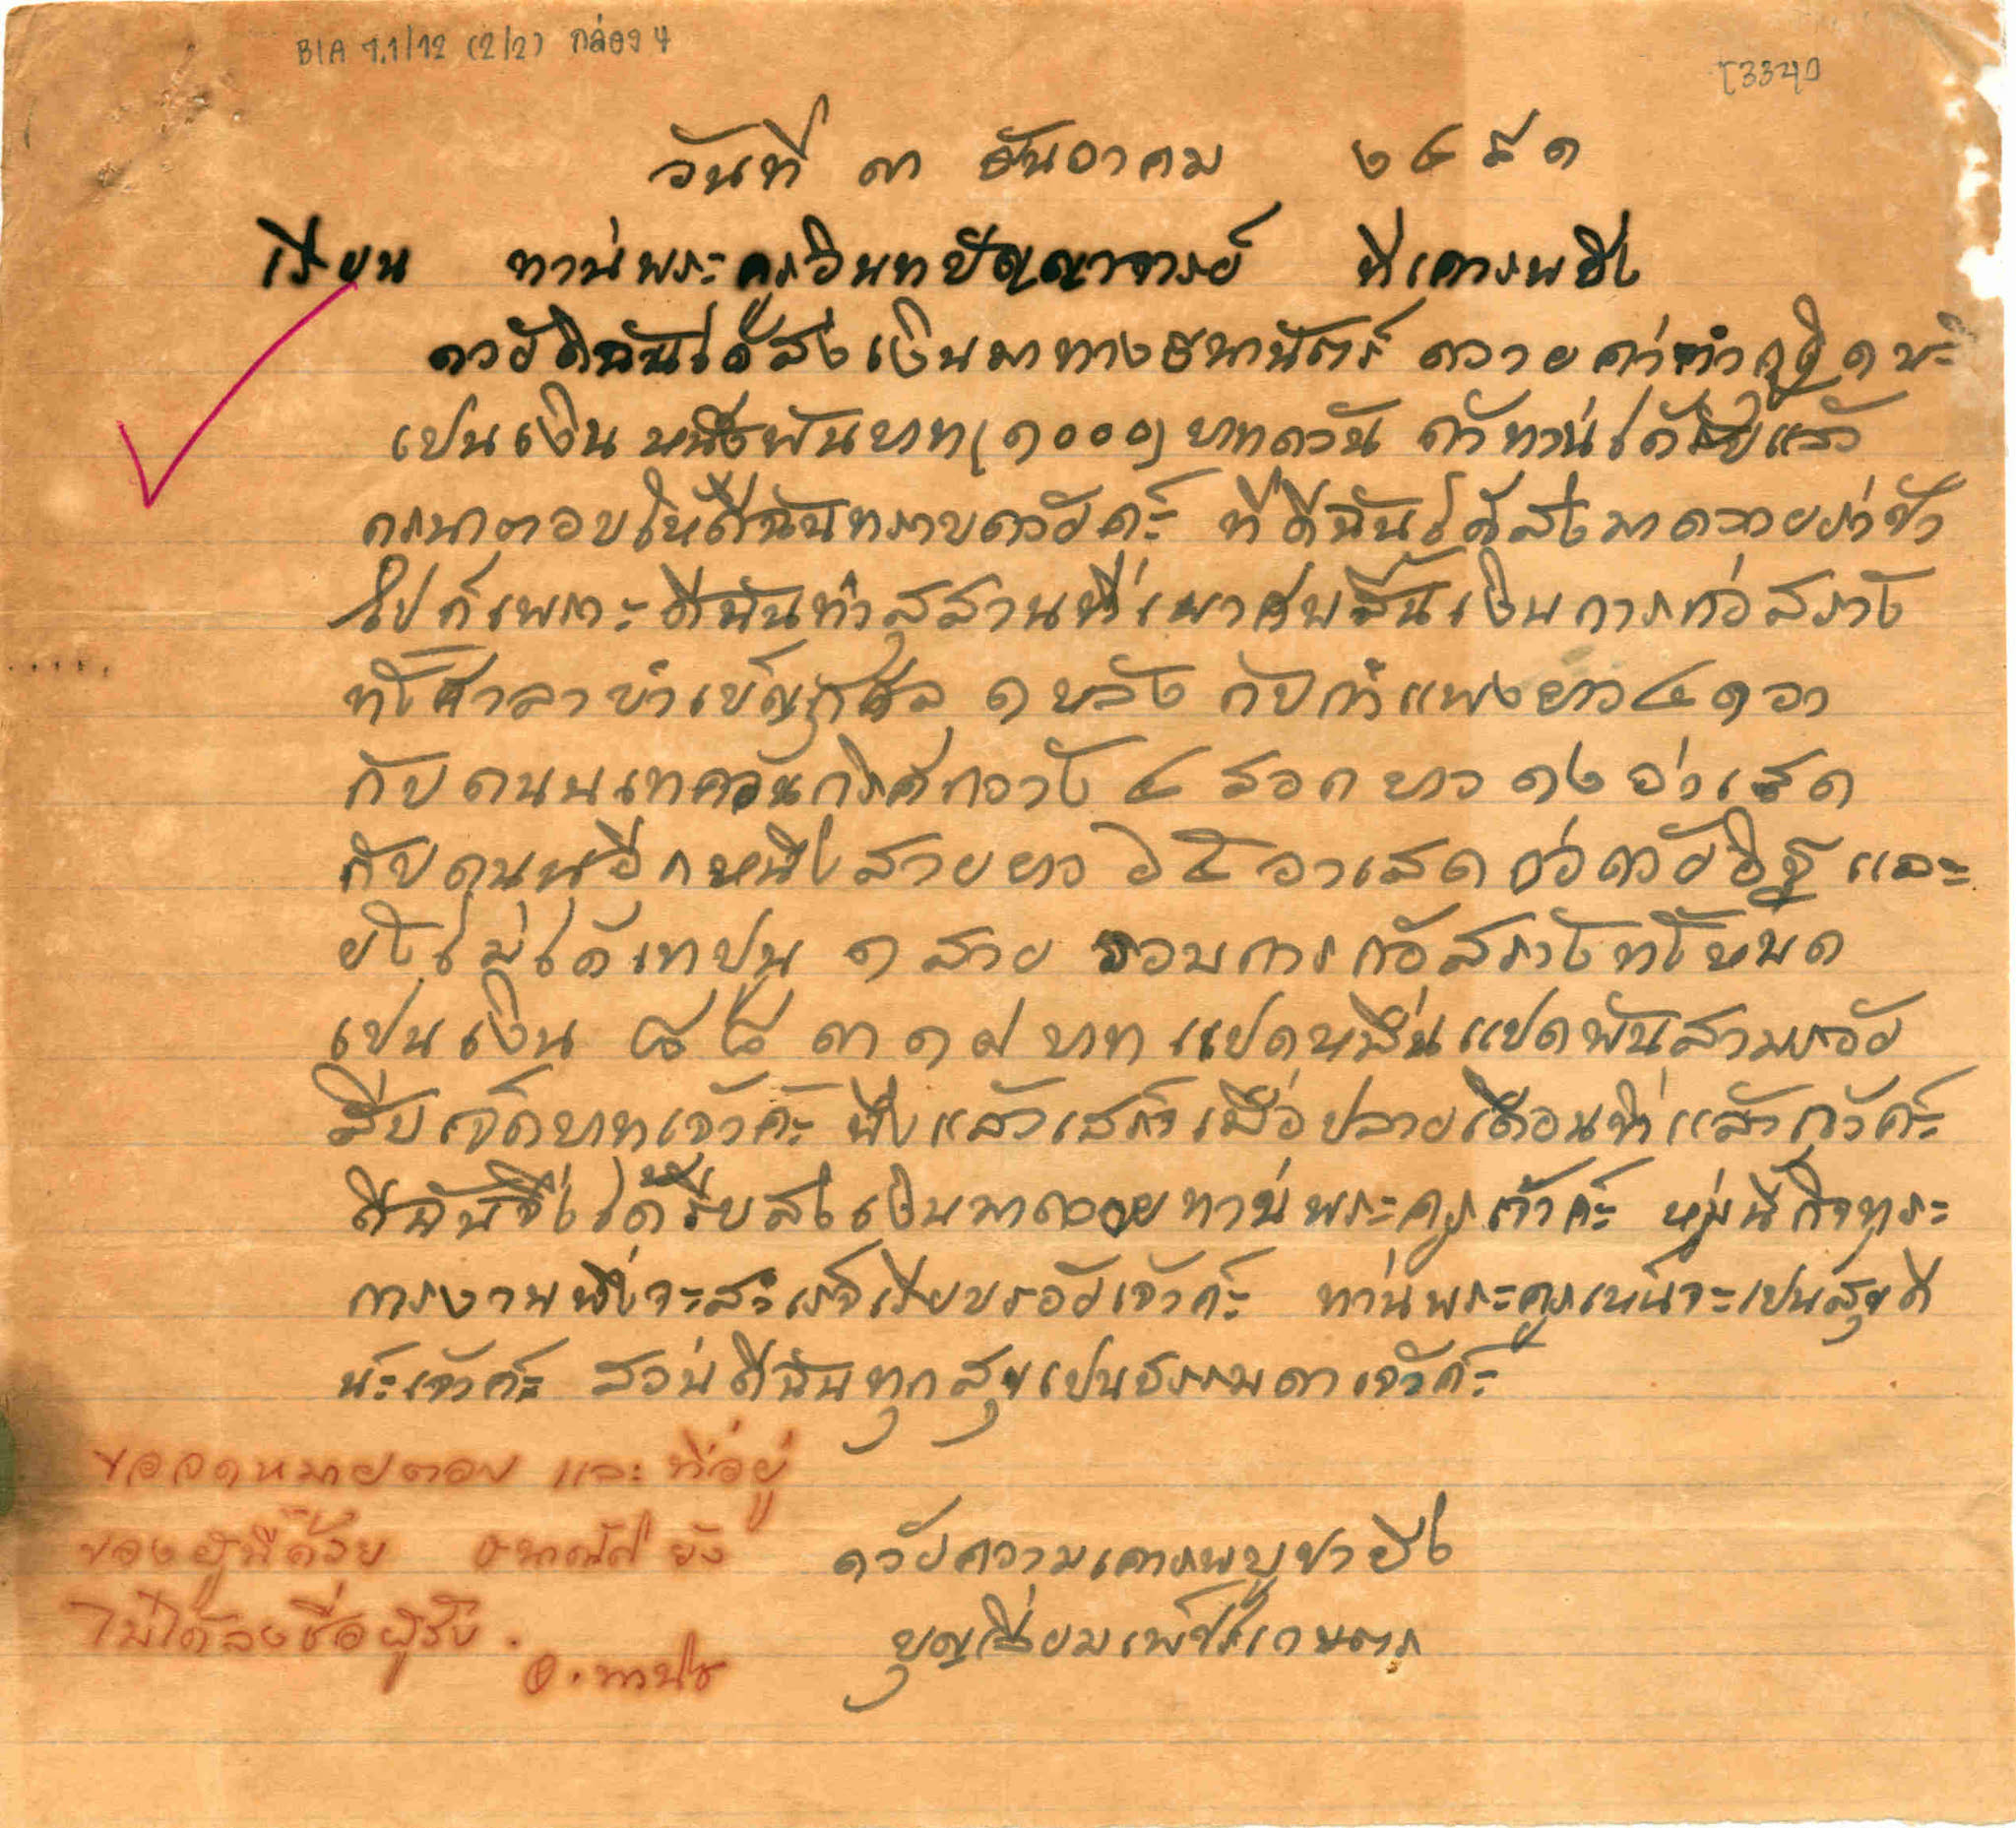 BIA 1.1/12 (2/2) กล่อง 4
[334]
วันที่ ๓ ธันวาคม ๒๔๙๑
เรียน ท่านพระครูอินทปัญญาจารย์ ที่เคารพยิ่ง
ดวยดิฉันได้ส่งเงินมาทางธนานัตร์ ถวายค่าทำกุฏิ
เปนเงินหนึ่งพันบาท(๑๐๐๐) บาทถวัน ถ้าท่านได้รับแล้ว
กรุนาตอบให้ดีฉันทราบดวยค่ะ ที่ดีฉันได้ส่งมาถวายล่าช้า
ไปก็เพราะดีฉันทำสุสานที่เผาศพสิ้นเงินการก่อสราง
ทังศาลาบำเพ็ญกุศล ๑ หลัง กับกำแพงยาว ๔๑ วา
กับถนนเทคอนกรีตกวาง ๔ สอก ยาว ๑๒ วาเสด
กับถนนอีกหนึ่งสายยาว ๖๕ วาเสด ก่อดวยอิฐ และ
ยังไม่ได้เทปูน ๑ สาย รวมการก่อสรางทังหมด
เปนเงิน ๘๘๓๑๗ บาท แปดหมื่นแปดพันสามรอย
สิบเจ็ดบาทเจ้าค่ะ พึ่งแล้วเสร็จเมื่อปลายเดือนที่แล้วเจ้าค่ะ
ดีฉันจึงได้รีบส่งเงินมาถวายท่านพระครูเจ้าค่ะ หมู่นี้กิจทุระ
การงานพึ่งจะสำเร็จเรียบรอยเจ้าค่ะ ท่านพระครูเห็นจะเปนสุขดี
นะเจ้าค่ะ สวนดีฉันทุกสุขเปนธรรมดาเจ้าค่ะ
ขอจดหมายตอบ และที่อยู่
ของผู้นี้ด้วย ธนาณัติ ยัง
ไม่ได้ลงชื่อผู้รับ.
ธ. พานิช
ดวยความเคารพบูชายิ่ง
บุญเสี่ยม